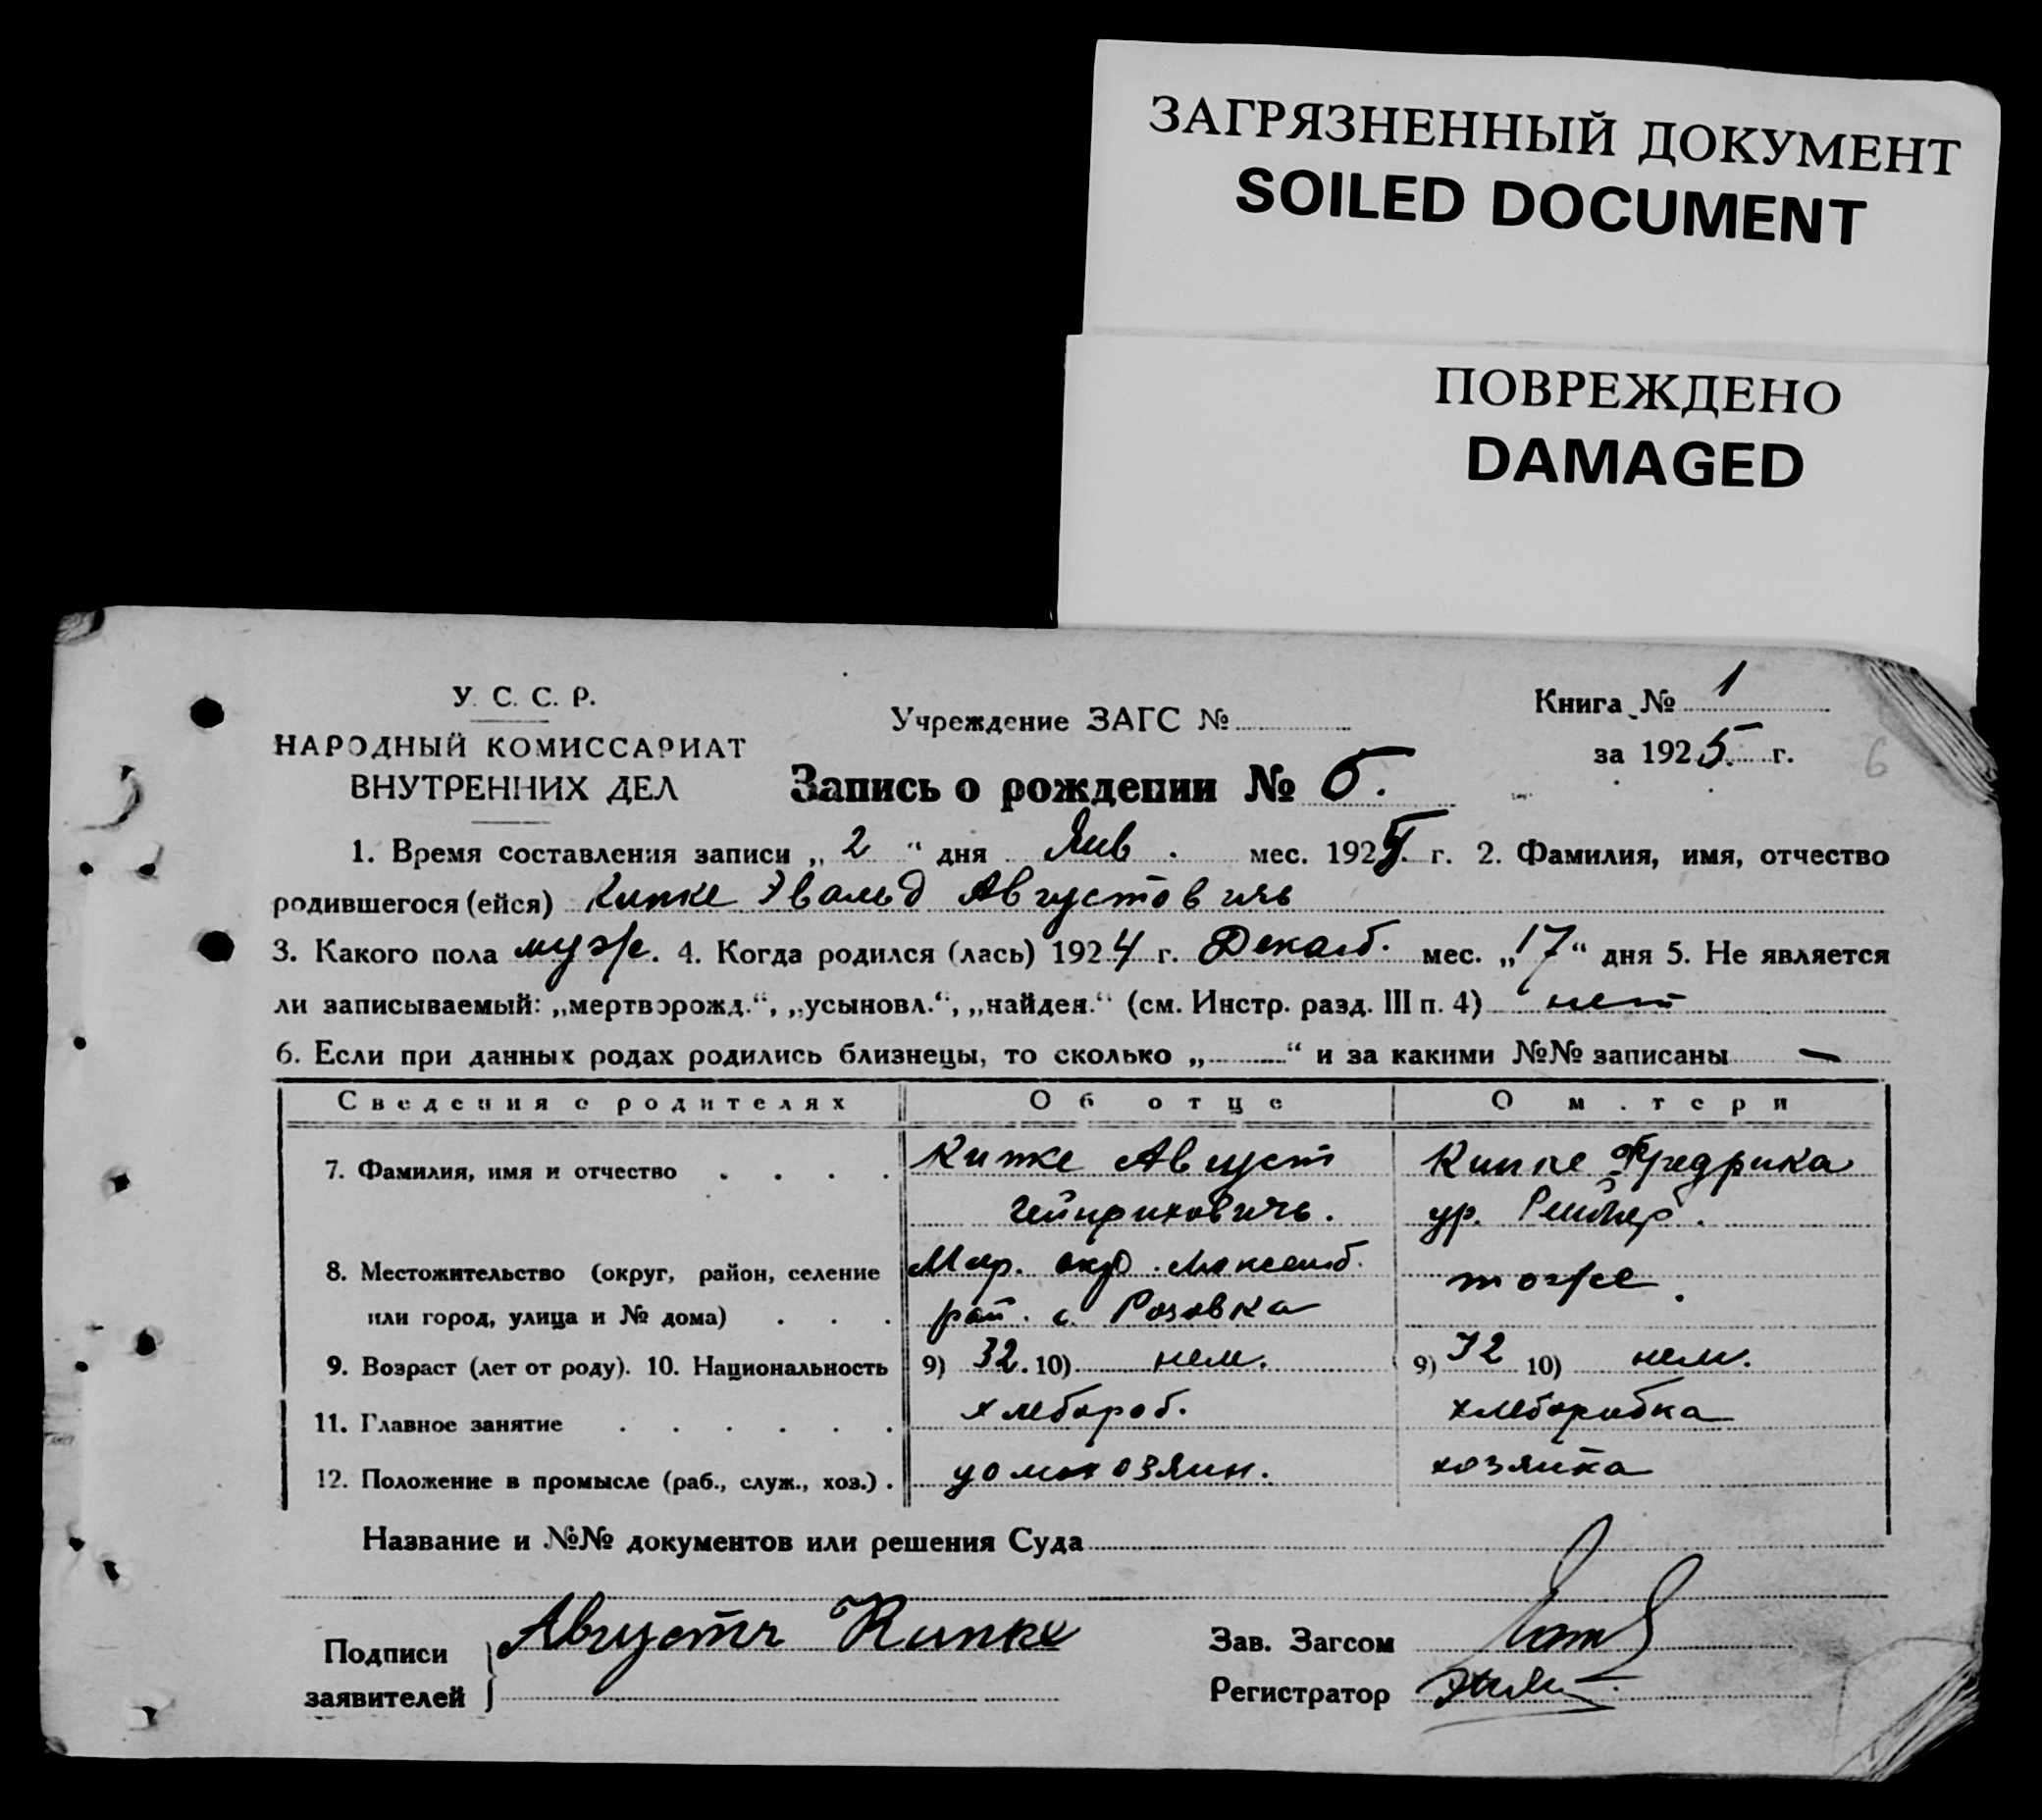 ЗАГРЯЗНЕННЫЙ ДОКУМЕНТ
SOILED DOCUMENT
ПОВРЕЖДЕНО
DAMAGED
У. С. С. Р.
НАРОДНЫЙ КОМИССАРИАТ
ВНУТРЕННИХ ДЕЛ
Учреждение ЗАГС №
Книга № 1
за 1925 г.
6
Запись о рождении № 5.
1. Время составления записи „2“ дня Янв. мес. 1925 г. 2. Фамилия, имя, отчество
родившегося (ейся) Кипке Эвальд Августовичь
3. Какого пола муж. 4. Когда родился (лась) 1924 г. Декаб. мес. „17“ дня 5. Не является
ли записываемый: „мертворожд.“, „усыновл.“, „найден.“ (см. Инстр. разд. III п. 4) нет
6. Если при данных родах родились близнецы, то сколько „ “ и за какими №№ записаны —
Сведения о родителях Об отце О м.тери
7. Фамилия, имя и отчество Кипке Август Кипке Фредрика
Гейнриховичь. ур.
8. Местожительство (округ, район, селение Мар. окр. Люксемб. тоже.
или город, улица и № дома) рай. с. Розовка
9. Возраст (лет от роду). 10. Национальность 9) 32. 10) нем. 9) 32 10) нем.
11. Главное занятие хлебороб. хлеборобка
12. Положение в промысле (раб., служ., хоз.) домохозяин. хозяйка
Название и №№ документов или решения Суда
Подписи заявителей Августъ Кипке
Зав. Загсом
Регистратор